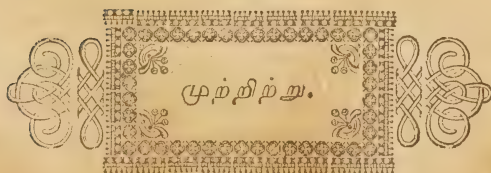 முற்றிற்று.